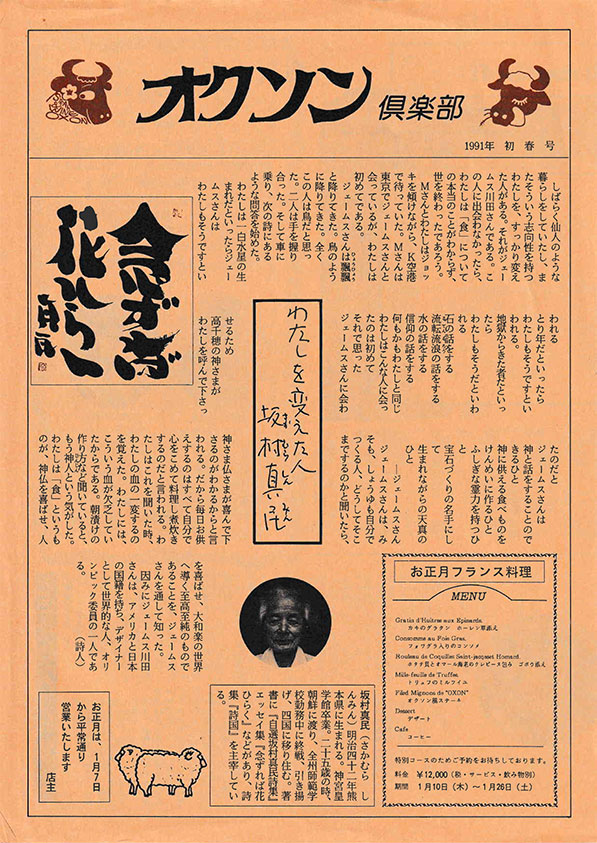 オクソン倶楽部
1991年 初春号
しばらく仙人のような
暮らしをしていたし、ま
たそういう志向性を持つ
わたしを、すっかり変え
た人がある。それがジェー
ムス川田さんである。こ
の人に出会わなかったら、
わたしは「食」について
の本当のことがわからず、
世を終わったであろう。
Mさんとわたしはジョッ
キを傾けながら、K空港
で待っていた。Mさんは
東京でジェームスさんと
会っているが、わたしは
初めてである。
ジェームスさんは飄飄
と降りてきた。鳥のよう
に降りてきた。全く
この人は鳥だと思っ
た。二人は手を握り
合った。そして車に
乗り、次の詩にある
ような問答を始めた。
わたしは一白水星の生
まれだといったらジェー
ムスさんは
わたしもそうですとい
念ずれば
花ひらく
真民
われる
とり年だといったら
わたしもそうですとい
われる。
地獄からきた者だといっ
たら
わたしもそうだといわ
れる
石の話をする
流転流浪の話をする
水の話をする
信仰の話をする
何もかもわたしと同じ
わたしはこんな人に会っ
たのは初めて
それで思った
ジェームスさんに会わ
せるため
高千穂の神さまが
わたしを呼んで下さっ
わたしを変えた人
坂村真民
たのだと
ジェームスさんは
神と話をすることので
きるひと
神に供える食べものを
けんめいに作るひと
ふしぎな霊力を持つひ
と
宝石づくりの名手にし
て
生まれながらの天真の
ひと
―ジェームスさん
ジェームスさんは、み
そも、しょうゆも自分で
つくる人、どうしてそこ
までするのかと聞いたら、
神さま仏さまが喜んで下
さるのがわかるからと言
われる。だから毎日お供
えするのはすべて自分で
心をこめて料理し煮炊き
するのだと言われる。わ
たしはこれを聞いた時、
わたしの血の一変するの
を覚えた。わたしには、
こういう血が欠乏してい
たからである。朝漬けの
作り方など聞いていると、
もう神人という気がした。
わたしは「食」というも
のが、神仏を喜ばせ、人
を喜ばせ、大和楽の世界
へ導く至高至純のもので
あることを、ジェームス
さんを通して知った。
因みにジェームス川田
さんは、アメリカと日本
の国籍を持ち、デザイナー
として世界的な人、オリ
ンピック委員の一人であ
る。
（詩人）
坂村真民（さかむら し
んみん）明治四十二年熊
本県に生まれる。神宮皇
学館卒業。二十五歳の時、
朝鮮に渡り、全州師範学
校勤務中に終戦、引き揚
げ、四国に移り住む。著
書に『自選坂村真民詩集』
エッセイ集『念ずれば花
ひらく』などがあり、詩
集『詩国』を主宰してい
お正月フランス料理
MENU
Gratin d'Huitres aux Epinards.
カキのグラタン ホーレン草添え
Consomme au Fois Gras.
フォワグラ入りのコンソメ
Rouleau de Coquilles Saint-jacqueset Homard.
ホタテ貝とオマール海老のクレピーヌ包み ゴボウ添え
Mille-feuille de Truffes.
トリュフのミルフイユ
Filed Mignons de "OXON"
オクソン風ステーキ
Dessert
デザート
Cafe
コーヒー
特別コースのためご予約をお待ちしております。
料金 ¥12,000（税・サービス・飲み物別）
期間 1月10日（木）～1月26日（土）
お正月は、1月7日
から平常通り
営業いたします
店主